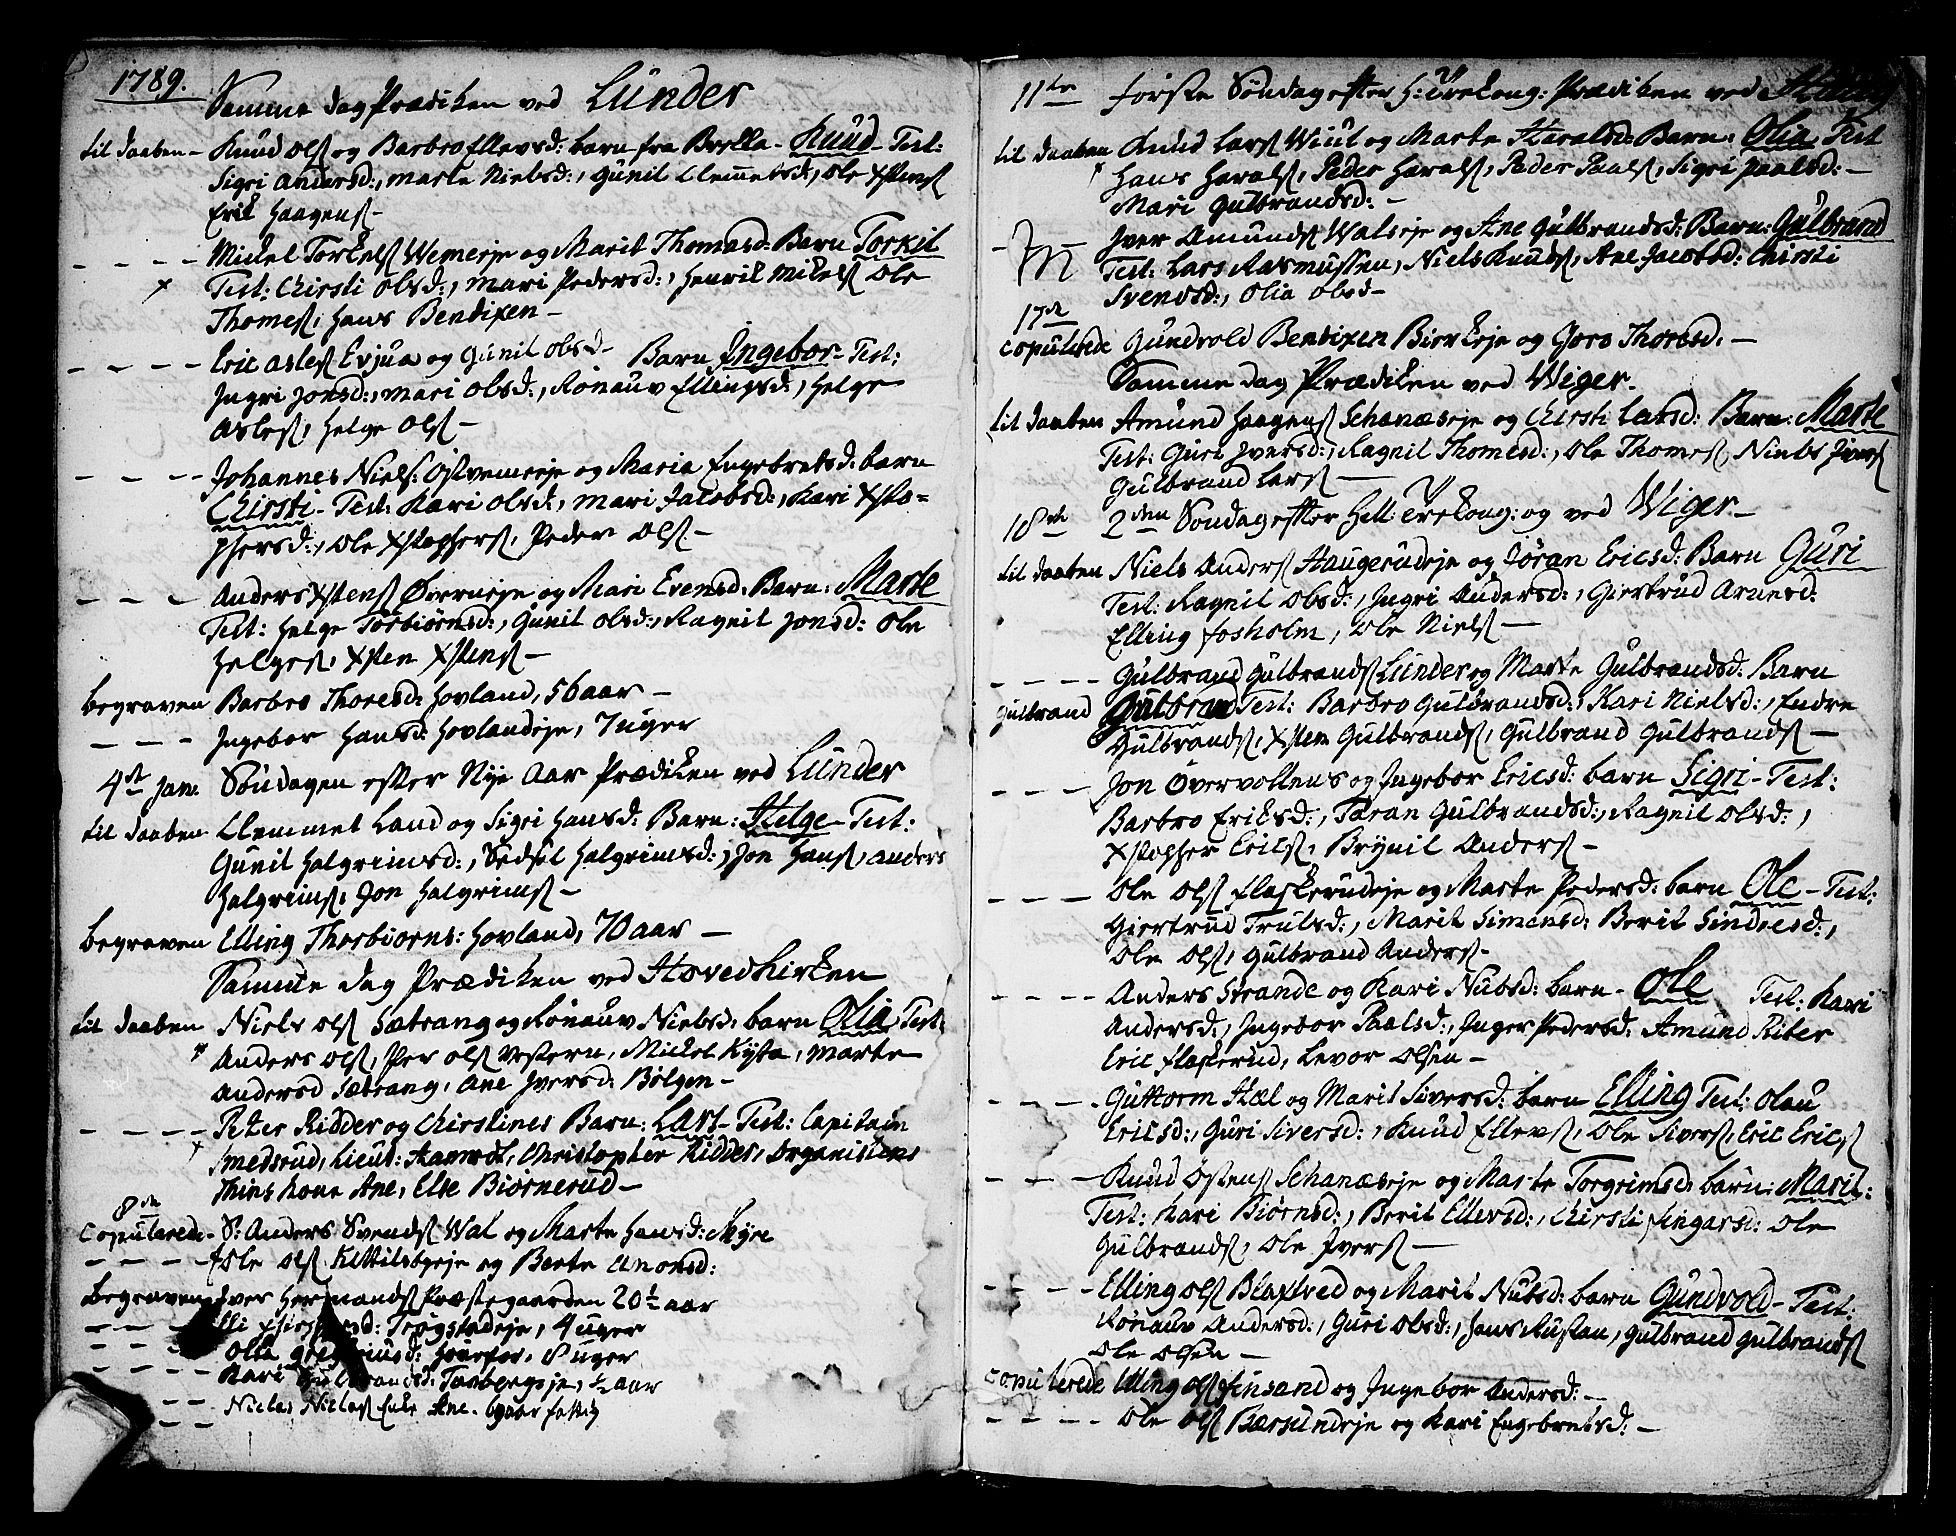 1789.
Samme dag Prædiken ved Lunder
til daaben - Knud Ols: og Barbro Ellevsd: barn fra Brelle - Knud - Test:
Sigri Andersd:, Marte Nielsd:, Gunil Clemetsd:, Ole Xstens:
Erik Haagens: -
- - - - Mickel Torkels: Wemeje og Marit Thomasd: Barn Torkil
Test: Chirsti Olsd:, Mari Pedersd:, Henrik Mikels: Ole
Thomes:, Hans Bendixen -
- - - - Eric Asles: Evjua og Gunil Olsd - Barn Ingebor - Test:
Ingri Jonsd:, Mari Olsd:, Rønauv Ellingsd:, Helge
Asles:, Helge Ols: -
- - - Johannes Niels: Østvemeje og Maria Engebretsd: barn
Chirsti - Test: Kari Olsd:, Mari Jacobsd:, Kari Xsto=
phersd:, Ole Xstophers:, Peder Ols: -
- - - Anders Xstens: Øverneje og Mari Evensd: Barn: Marte
Test: Helge Torbiørnsd:, Gunil Olsd:, Ragnil Jonsd: Ole
Helges:, Xsten Xstens: -
begraven Barbro Thoresd: Hovland, 56 aar -
- - - Ingebor Hansd: Hovlandeje, 7 uger
4de Jan: Søndagen efter Nye Aar Prædiken ved Lunder
til daaben Clemmet Land og Sigri Hansd: Barn: Helge - Test:
Gunil Halgrimsd:, Sedsel Halgrimsd:, Jon Hans:, Anders
Halgrims:, Jon Halgrims: -
begraven Elling Thorbiørns: Hovland, 70 aar -
Samme dag Prædiken ved Hovedkirken
til daaben Niels Ols: Sætrang og Rønauv Nielsd: barn Olia Test:
Anders Ols:, Per Ols: Vestern, Mickel Kysta, Marte
Andersd Sætrang, Ane Iversd: Bølgen -
- - - - Peter Ridder og Chirstines Barn: Lars - Test: Capitain
Smedsrud, Lieut: , Christopher Ridder, Organistens
Kone Ane, Else Biørnerud -
8de
Copulerede - S: Anders Svends: Wal og Marte Hansd: Myre
- - - - Ole Ols: Kittilsbyeje og Berte Amonsd:
Begraven Iver Hermands: Præstegaarden 20½ aar
- - - - Eli Trøgstadeje, 4 uger
- - - Olia Houxfos, 8 uger
- - - Kari Gulbrandsd: Tanbergseje, ½ aar
- - - Niclas Niclas: Ane. fattig
11te første Søndag efter H: Trekong: Prædiken ved Hauug
til daaben Knud Lars: Wiiul og Marte Haralsd: Barn: Olia Test
Hans Harals:, Peder Harals:, Peder Paals:, Sigri Paalsd: -
Mari Gulbrandsd: -
Iver Amunds: Walseje og Ane Gulbrandsd: Barn: Gulbrand
Test: Lars Rasmussen, Niels Knuds:, Ane Jacobsd: Chirsti
Svendsd:, Olia Olsd -
17de
Copulerede Gundvold Bendixen Birkeje og Goro Thoresd. -
Samme dag Prædiken ved Wiger.
til daaben Amund Haagens: Schanæseje og Chirsti Larsd: Barn: Marte
Test: Guri Iversd:, Ragnil Thomesd:, Ole Thomes:, Niels Ivers:
Gulbrand Lars: -
18de 2den Søndag efter Hell: Trekong: og ved Wiger -
til daaben Niels Anders: Haugerudeje og Jøran Ericsd: Barn Guri
Test: Ragnil Olsd:, Ingri Andersd:, Giertrud Arnesd.
Elling Fosholm, Ole Niels: -
- - - - Gulbrand Gulbrands: Lunder og Marte Gulbrandsd: Barn
Gulbrand Gulbrand Test: Barbro Gulbrandsd:, Kari Nielsd:, Endre
Gulbrands:, Xsten Gulbrands:, Gulbrand Gulbrands: -
- - - Jon Øvervollens og Ingebor Ericsd: barn Sigri - Test:
Barbro Eriksd:, Taran Gulbrandsd:, Ragnil Olsd:,
Xstopher Erics:, Brynil Anders: -
- - - Ole Ols: Flaskerudeje og Marte Pedersd: barn Ole - Test:
Giertrud Trulsd:, Marit Simensd: Berit Sindresd:,
Ole Ols:, Gulbrand Anders: -
- - - - Anders Strande og Kari Nubsd: barn - Ole Test: Kari
Andersd:, Ingebor Paalsd:, Inger Pedersd: Amund Riter
Eric Flaskerud, Levor Olsen -
- - - - Guttorm Hæl og Marit Siversd: barn Elling Test: Olau
Ericsd:, Guri Siversd:, Knud Ellevs:, Ole Sivers:, Eric Erics:
- - - Knud Østens: Schanæseje og Marte Torgrimsd: barn: Marit:
Test: Kari Biørnsd:, Berit Ellersd:, Chirsti Fingarsd: Ole
Gulbrands:, Ole Ivers: -
- - - - Elling Ols: Blaxtved og Marit Nubsd: barn Gundvold - Test:
Rønauv Andersd:, Guri Olsd:, Hans Rustan, Gulbrand Gulbrands:
Ole Olsen -
Copulerede Elling Ols: Finsand og Ingebor Andersd: -
- - - - Ole Ols: Bærsundeje og Kari Engebretsd: -